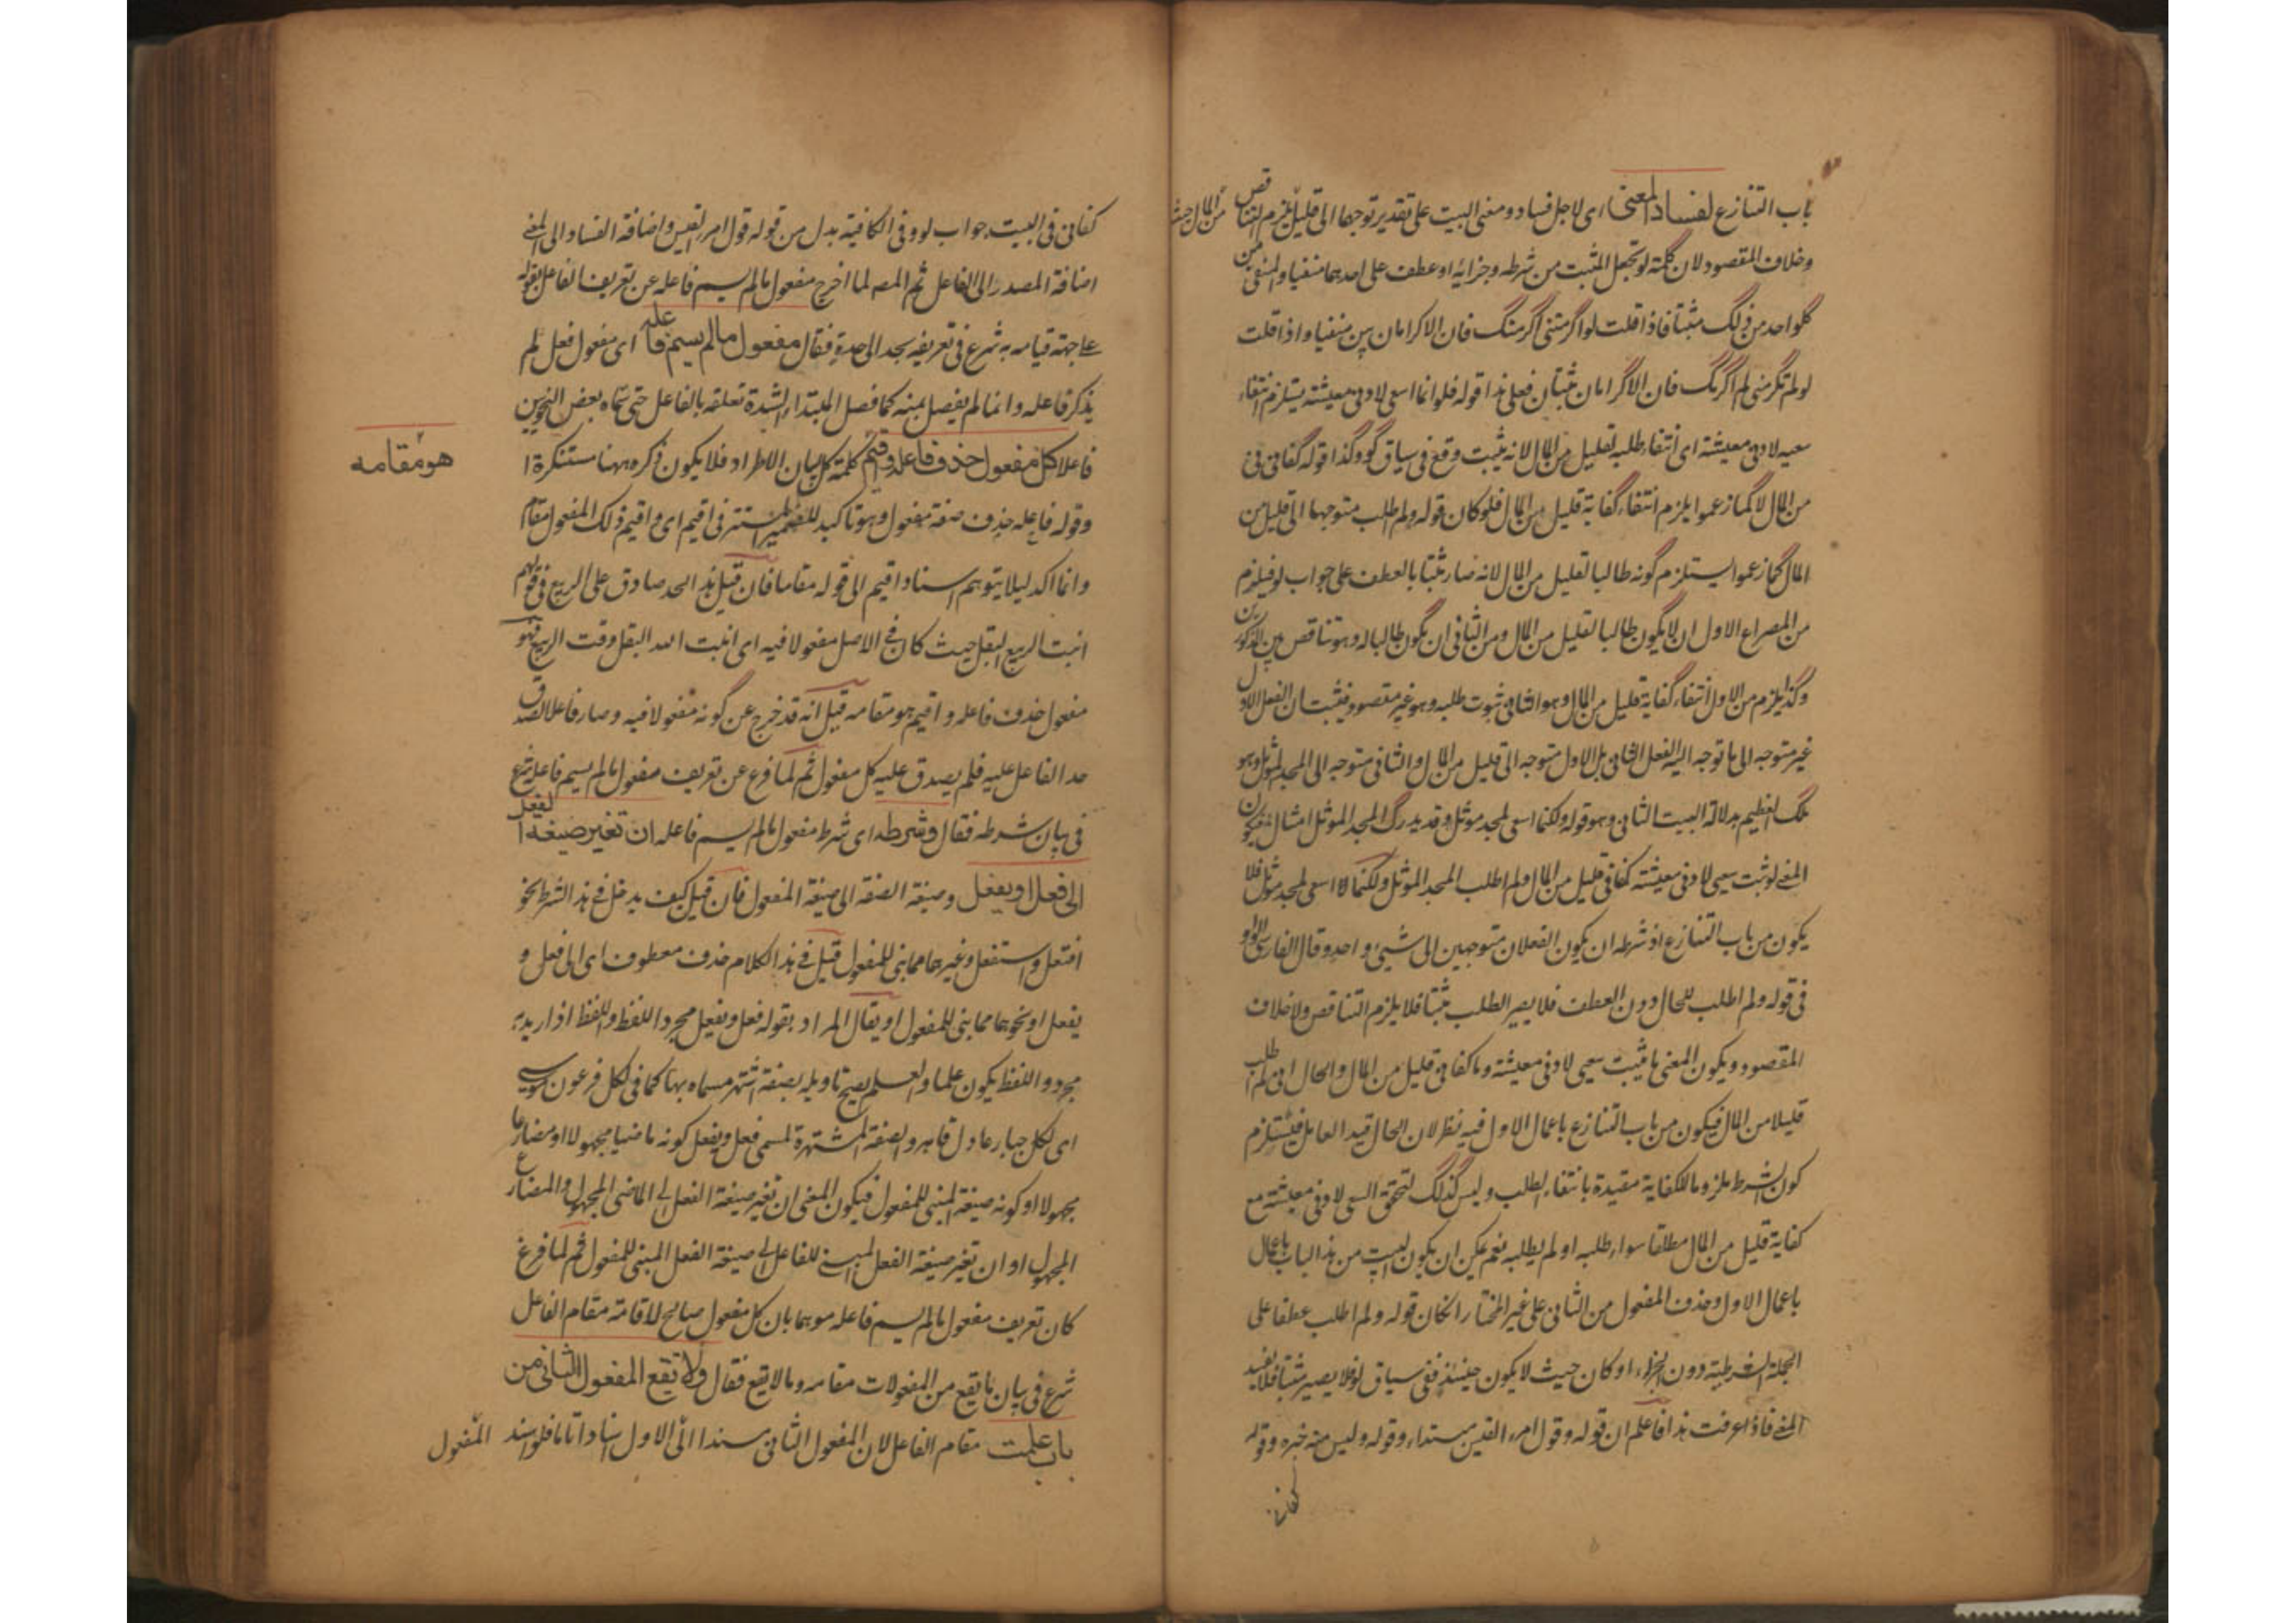 باب التنازع لفساد المعنى اى لاجل فساد ومعنى البيت على تقدير توجهما الى قليل يلزم التناقض من المال حيث
وخلاف المقصود لان كلمة لو تجعل المثبت من شرطه وجزائه او عطف على احدهما منفيا والمنفى من
كلواحد من ذلك مثبتا فاذا قلت لو اكرمتنى اكرمتك فان الاكرامان منفيا واذا قلت
لو لم تكرمنى لم اكرمك فان الاكرامان مثبتان فعلى هذا قوله فلو انما اسعى لادنى معيشة يستلزم انتفاء
سعيه لادنى معيشة اى انتفاء طلبه لقليل من المال لانه مثبت وقع فى سياق لو وكذا قوله كفانى
من المال لا كما زعموا يلزم انتفاء كفاية قليل من المال فلو كان قوله ولم اطلب متوجها الى قليل من
المال كما زعموا يستلزم كونه طالبا لقليل من المال لانه صار مثبتا بالعطف على جواب لو فيلزم
من المصراع الاول ان لا يكون طالبا لقليل من المال ومن الثانى ان يكون طالبا له وهو تناقض
وكذا يلزم من الاول انتفاء كفاية قليل من المال وهو ثبوت طلبه وهو غير مقصود فيثبت ان الفعل الاول
غير متوجه الى ما توجه اليه الفعل الثانى بل الاول متوجه الى قليل من المال والثانى متوجه الى المجد المؤثل وهو
ملك العظيم بدلالة البيت الثانى وهو قوله ولكنما اسعى لمجد مؤثل وقد يدرك المجد المؤثل امثالى فيكون
المعنى لو ثبت سعيى لادنى معيشة كفانى قليل من المال ولم اطلب المجد المؤثل ولكنما اسعى لمجد مؤثل فلا
يكون من باب التنازع اذ شرطه ان يكون الفعلان متوجهين الى شىء واحد وقال الفارسى الواو
فى قوله ولم اطلب للحال دون العطف فلا يصير الطلب مثبتا فلا يلزم التناقض ولا خلاف
المقصود ويكون المعنى ما يثبت سعيى لادنى معيشة وما كفانى قليل من المال والحال انى لم اطلب
قليلا من المال فيكون من باب التنازع باعمال الاول فيه نظر لان الحال قيد العامل فيستلزم
كون الشرط ملزوما للكفاية مقيدة بانتفاء الطلب وليس كذلك لتحقق السعى لادنى معيشة مع
كفاية قليل من المال مطلقا سواء طلبه او لم يطلبه نعم يمكن ان يكون البيت من هذا الباب باعمال
باعمال الاول وحذف المفعول من الثانى على غير المختار ان كان قوله ولم اطلب عطفا على
الجملة الشرطية دون الجزاء او كان حيث لا يكون حينئذ ففى سياق لو فلا يصير مثبتا فلا يفسد
المعنى فاذا عرفت هذا فاعلم ان قوله وقول امرء القيس مبتداء وقوله وليس منه خبره وقوله
كفانى
كفانى فى البيت جواب لو وفى الكافية بدل من قوله قول امرء القيس واضافة الفساد الى المعنى
اضافة المصدر الى الفاعل ثم المصـ لما اخرج مفعول ما لم يسم فاعله عن تعريف الفاعل بقوله
على جهة قيامه به شرع فى تعريفه بحد على حدة فقال مفعول ما لم يسم فاعله اى مفعول فعل لم
يذكر فاعله وانما لم يفصل بمنه كما فصل المبتداء لشدة تعلقه بالفاعل حتى سماه بعض النحويين
فاعلا كل مفعول حذف فاعله واقيم كلمة كل لبيان الاطراد فلا يكون ذكره ههنا مستنكرة
هو مقامه
وقوله فاعله حذف صفة مفعول وهو تاكيد للضمير المستتر فى اقيم اى واقيم ذلك المفعول مقام
وانما اكد ليلا يتوهم اسناد اقيم الى قوله مقامه فان قيل هذا الحد صادق على الربيع فى قولهم
انبت الربيع البقل حيث كان فى الاصل مفعولا فيه اى انبت الله البقل وقت الربيع فهو
مفعول حذف فاعله واقيم هو مقامه قيل انه قد خرج عن كونه مفعولا فيه وصار فاعلا لصدق
حد الفاعل عليه فلم يصدق عليه كل مفعول ثم لما فرغ عن تعريف مفعول ما لم يسم فاعله شرع
فى بيان شرطه فقال وشرطه اى شرط مفعول ما لم يسم فاعله ان تغير صيغة الفعل
الى فعل او يفعل وصيغة الصفة الى صيغة المفعول فان قيل كيف يدخل فى هذا الشرط نحو
افتعل واستفعل وغيرهما مما بنى للمفعول قيل فى هذا الكلام حذف معطوف اى الى فعل و
يفعل او نحوهما مما بنى للمفعول او يقال المراد بقوله فعل ويفعل مجرد اللفظ واللفظ اذا اريد به
مجرد اللفظ يكون علما والعلم يصح تاويله بصفة اشتهر مسماه بها كما فى لكل فرعون موسى
اى لكل جبار عادل قاهر والصفة المشتهرة لمسمى فعل ويفعل كونه ماضيا مجهولا او مضارعا
مجهولا او كونه صيغة المبنى للمفعول فيكون المعنى ان تغير صيغة الفعل الى الماضى المجهول والمضارع
المجهول او ان تغير صيغة الفعل المبنى للفاعل الى صيغة الفعل المبنى للمفعول ثم لما فرغ
كان تعريف مفعول ما لم يسم فاعله موهما بان كل مفعول صالح لاقامته مقام الفاعل
شرع فى بيان ما يقع من المفعولات مقامه وما لا يقع فقال ولا تقع المفعول الثانى من
باب علمت مقام الفاعل لان المفعول الثانى مسند الى الاول اسنادا تاما فلو اسند المفعول